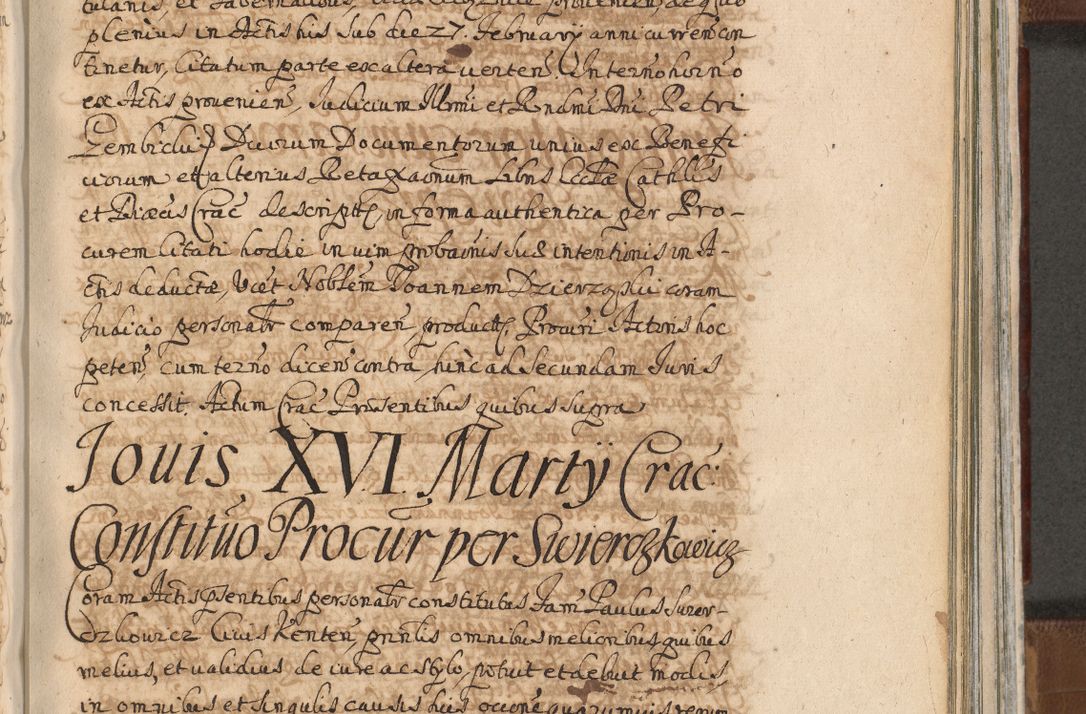 plenius in Actis his sub die 27. February anni curren con
tinetur, Citatum parte ex altera verten. In terno horno
ex Actis provenien, Judicium Illrmi et Rndmi Dni Petri
Gembicki Duorum Documentorum unius ex Benefi
ciorum et alterius Retaxaonum Libris Ecclae Cathlis
et Diaecis Crac descript, in forma authentica per Pro-
curem Citati hodie in vim probaonis suae intentionis in A-
ctis deductae, Vcet Noblem Joannem Dzierzgski coram
Judicio personalr comparen product, Procuri Actoris hoc
peten, cum terno dicen contra, hinc ad secundam Juris
concessit. Actum Crac Praesentibus quibus supra
Jovis XVI. Martÿ Crac:
Constituo Procur per Swierczkowicz
Coram Actis psentibus personalr constitutus Fam Paulus Swier-
czkowicz Civis Kenten, gnnlis omnibus melioribus quibus
melius, et validius de iure ac stylo potuit et debuit modis,
in omnibus et singulis causis suis ocione quarumvis rerum